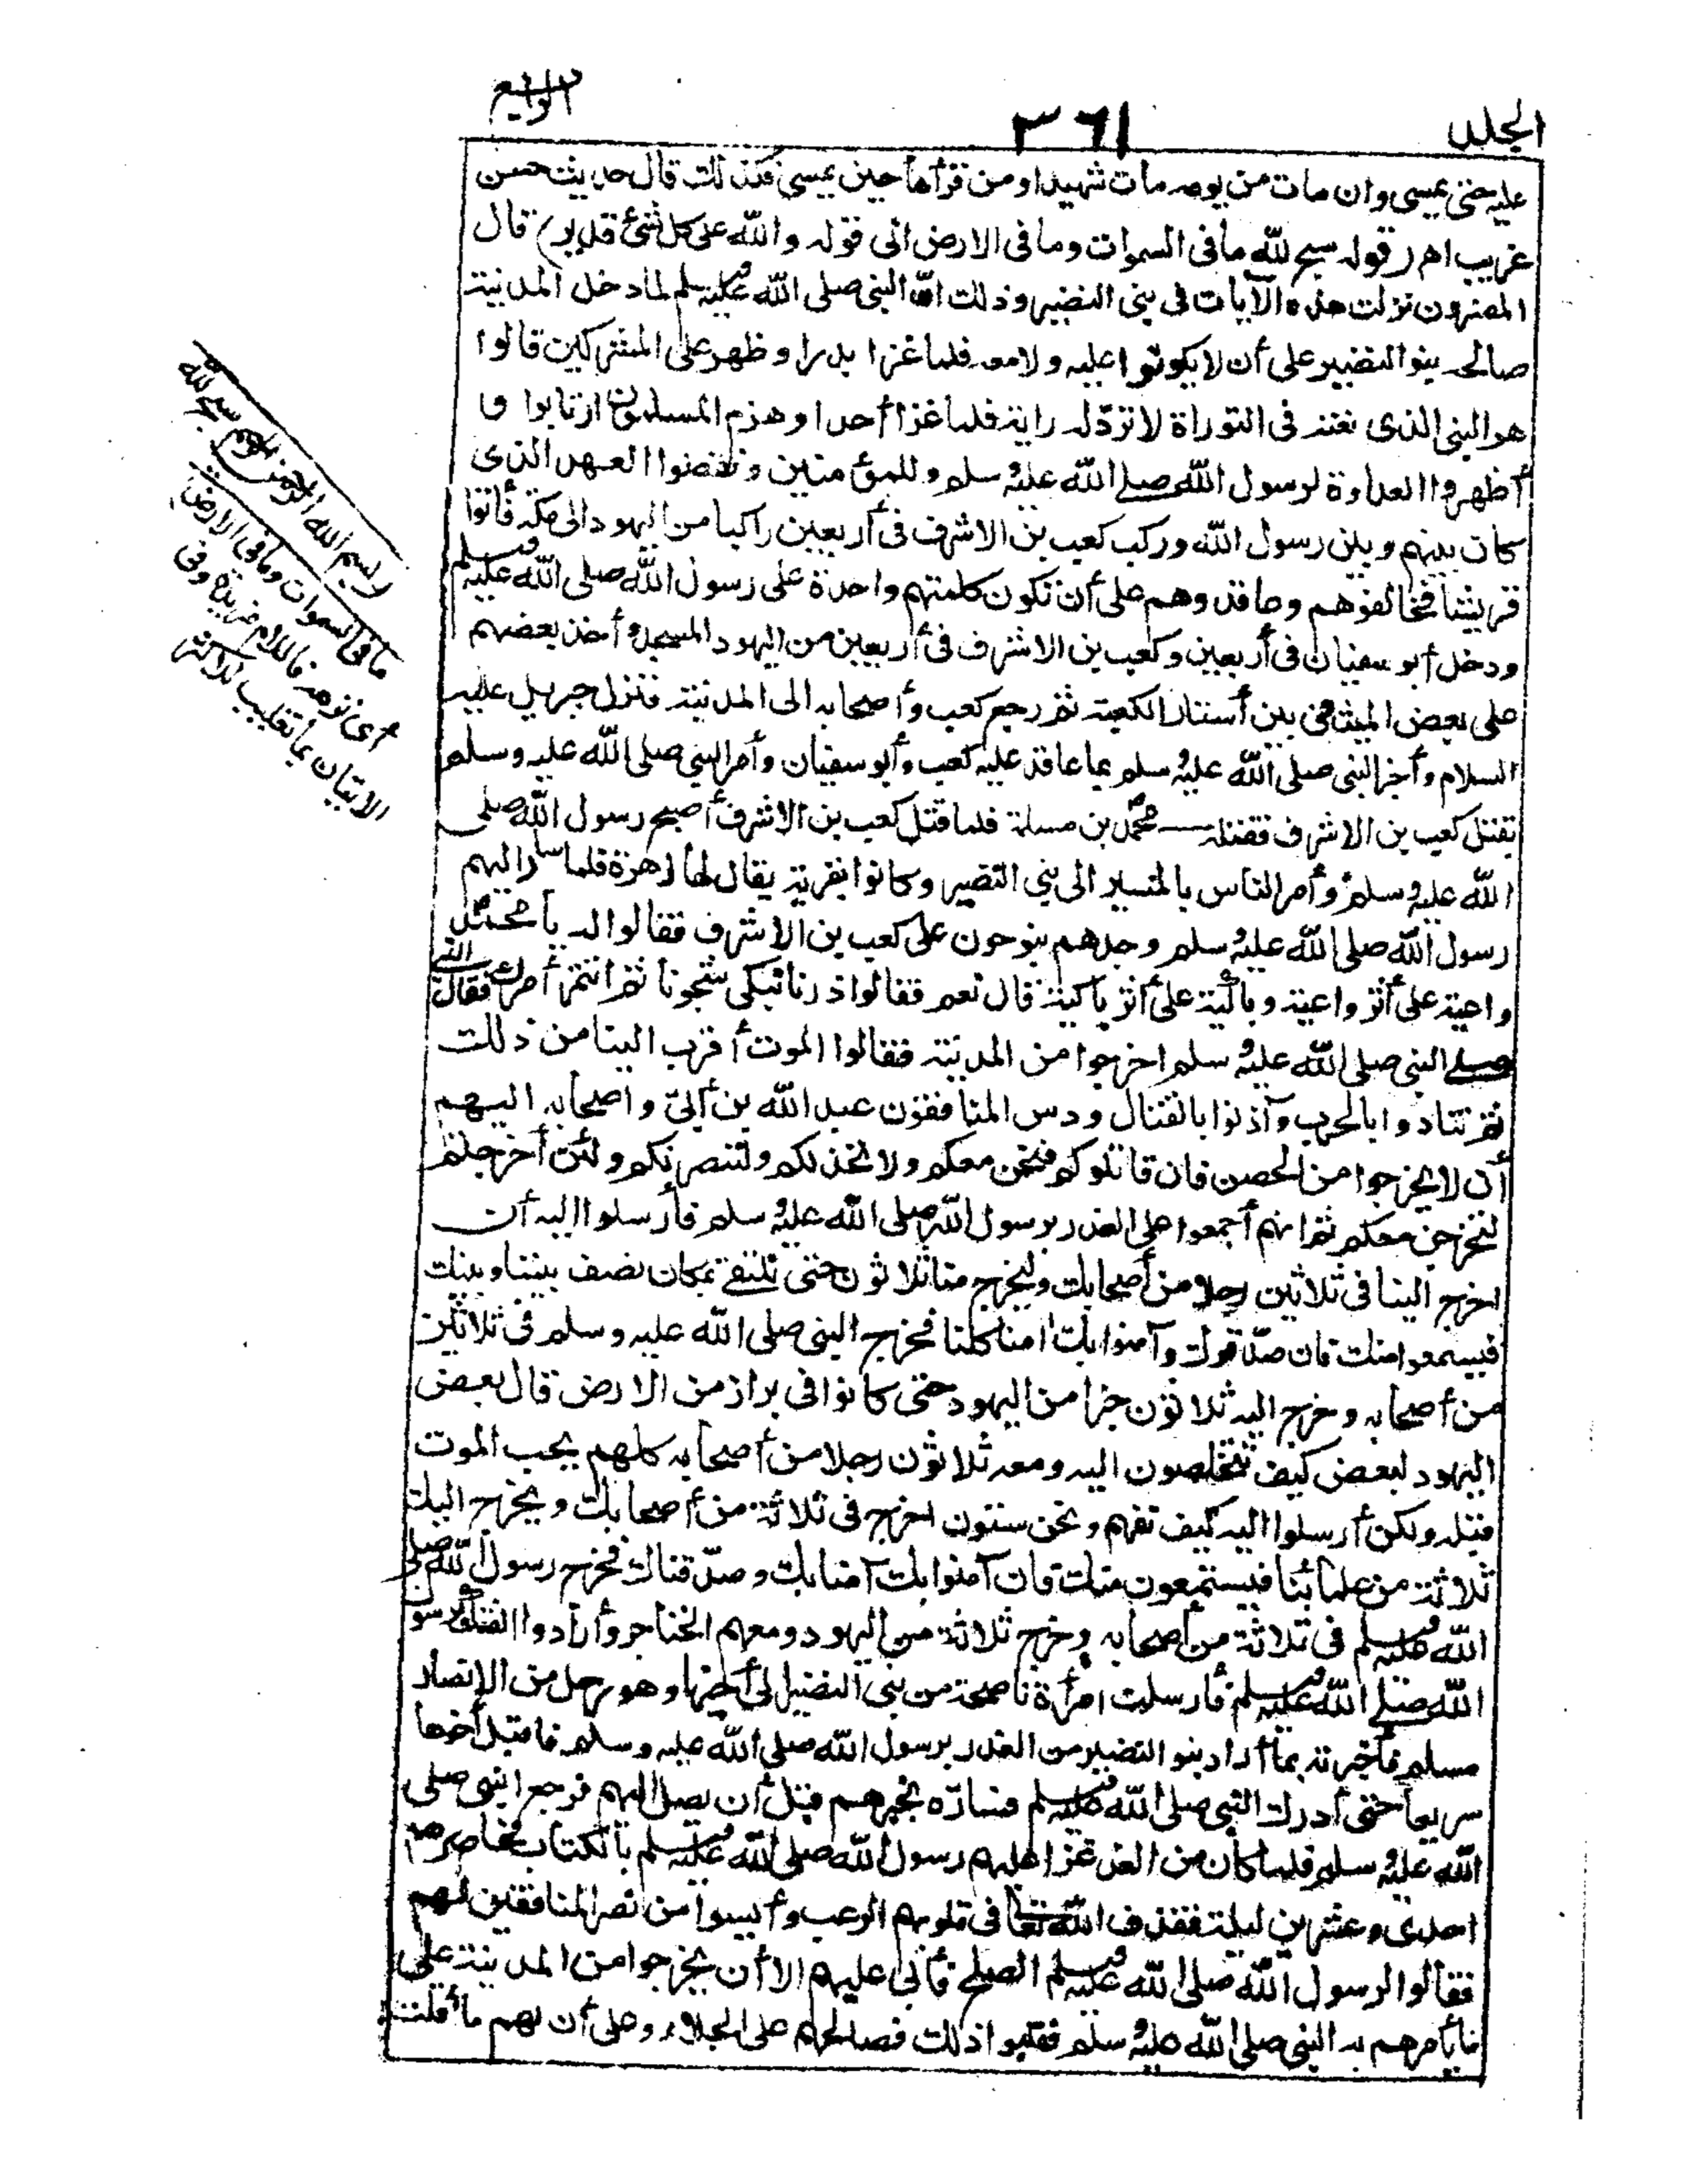 المجلد
٣٦١
الرابع
عليه حتى يمسى وان مات من يومه مات شهيدا ومن قرأها حين يمسى فكذلك قال حديث حسن
غريب اه (قوله سبح لله ما فى السموات وما فى الارض الى قوله والله على كل شئ قدير) قال
المفسرون نزلت هذه الآيات فى بنى النضير وذلك ان النبى صلى الله عليه وسلم لما دخل المدينة
صالحه بنو النضير على أن لا يكونوا عليه ولا معه فلما غزا بدرا وظهر على المشركين قالوا
هو النبى الذى نعته فى التوراة لا تردّ له راية فلما غزا أحدا وهزم المسلمون ارتابوا و
أظهروا العداوة لرسول الله صلى الله عليه وسلم وللمؤمنين ونقضوا العهد الذى
كان بينهم وبين رسول الله وركب كعب بن الاشرف فى أربعين راكبا من اليهود الى مكة فأتوا
قريشا فحالفوهم وعاقدوهم على أن تكون كلمتهم واحدة على رسول الله صلى الله عليه وسلم
ودخل أبو سفيان فى أربعين وكعب بن الاشرف فى أربعين من اليهود المسجد وأخذ بعضهم
على بعض الميثاق بين أستار الكعبة ثم رجع كعب وأصحابه الى المدينة فنزل جبريل عليه
السلام وأخبر النبى صلى الله عليه وسلم بما عاقد عليه كعب وأبو سفيان وأمر النبى صلى الله عليه وسلم
بقتل كعب بن الاشرف فقتله محمد بن مسلمة فلما قتل كعب بن الاشرف أصبح رسول الله صلى
الله عليه وسلم وأمر الناس بالمسير الى بنى النضير وكانوا بقرية يقال لها زهرة فلما سار اليهم
رسول الله صلى الله عليه وسلم وجدهم ينوحون على كعب بن الاشرف فقالوا له يا محمد
واعية على أثر واعية وباكية على أثر باكية قال نعم فقالوا ذرنا نبكى شجونا ثم ائتمر أمرك فقال
النبى صلى الله عليه وسلم اخرجوا من المدينة فقالوا الموت أقرب الينا من ذلك
ثم تنادوا بالحرب وآذنوا بالقتال ودس المنافقون عبد الله بن أبىّ وأصحابه اليهم
أن لا يخرجوا من الحصن فان قاتلوكم فنحن معكم ولا نخذلكم ولننصرنكم ولئن أخرجتم
لنخرجن معكم ثم انهم أجمعوا على الغدر برسول الله صلى الله عليه وسلم فأرسلوا اليه أن
اخرج الينا فى ثلاثين رجلا من أصحابك وليخرج منا ثلاثون حتى نلتقى بمكان نصف بيننا وبينك
فيسمعوا منك فان صدّقوك وآمنوا بك آمنا كلنا فخرج النبى صلى الله عليه وسلم فى ثلاثين
من أصحابه وخرج اليه ثلاثون حبرا من اليهود حتى كانوا فى براز من الارض قال بعض
اليهود لبعض كيف تخلصون اليه ومعه ثلاثون رجلا من أصحابه كلهم يحب الموت
قبله ولكن أرسلوا اليه كيف نفهم ونحن ستون اخرج فى ثلاثة من أصحابك ويخرج اليك
ثلاثة من علمائنا فيستمعون منك فان آمنوا بك آمنا بك وصدّقناك فخرج رسول الله صلى
الله عليه وسلم فى ثلاثة من أصحابه وخرج ثلاثة من اليهود ومعهم الخناجر وأرادوا الفتك برسول
الله صلى الله عليه وسلم فأرسلت امرأة ناصحة من بنى النضير الى أخيها وهو رجل من الانصار
مسلم فأخبرته بما أراد بنو النضير من الغدر برسول الله صلى الله عليه وسلم فاقبل أخوها
سريعا حتى أدرك النبى صلى الله عليه وسلم فسارّه بخبرهم قبل أن يصل اليهم فرجع النبى صلى
الله عليه وسلم فلما كان من الغد غزا عليهم رسول الله صلى الله عليه وسلم بالكتاب فحاصرهم
احدى وعشرين ليلة فقذف الله تعالى فى قلوبهم الرعب وأيسوا من نصر المنافقين لهم
فقالوا لرسول الله صلى الله عليه وسلم الصلح فأبى عليهم الا أن يخرجوا من المدينة على
ما يأمرهم به النبى صلى الله عليه وسلم فقبلوا ذلك فصالحهم على الجلاء وعلى أن لهم ما أقلت
(بسم الله الرحمن الرحيم سبح لله
ما فى السموات وما فى الارض)
أى نزهه فاللام مزيدة وفى
الاتيان بما تغليب للاكثر